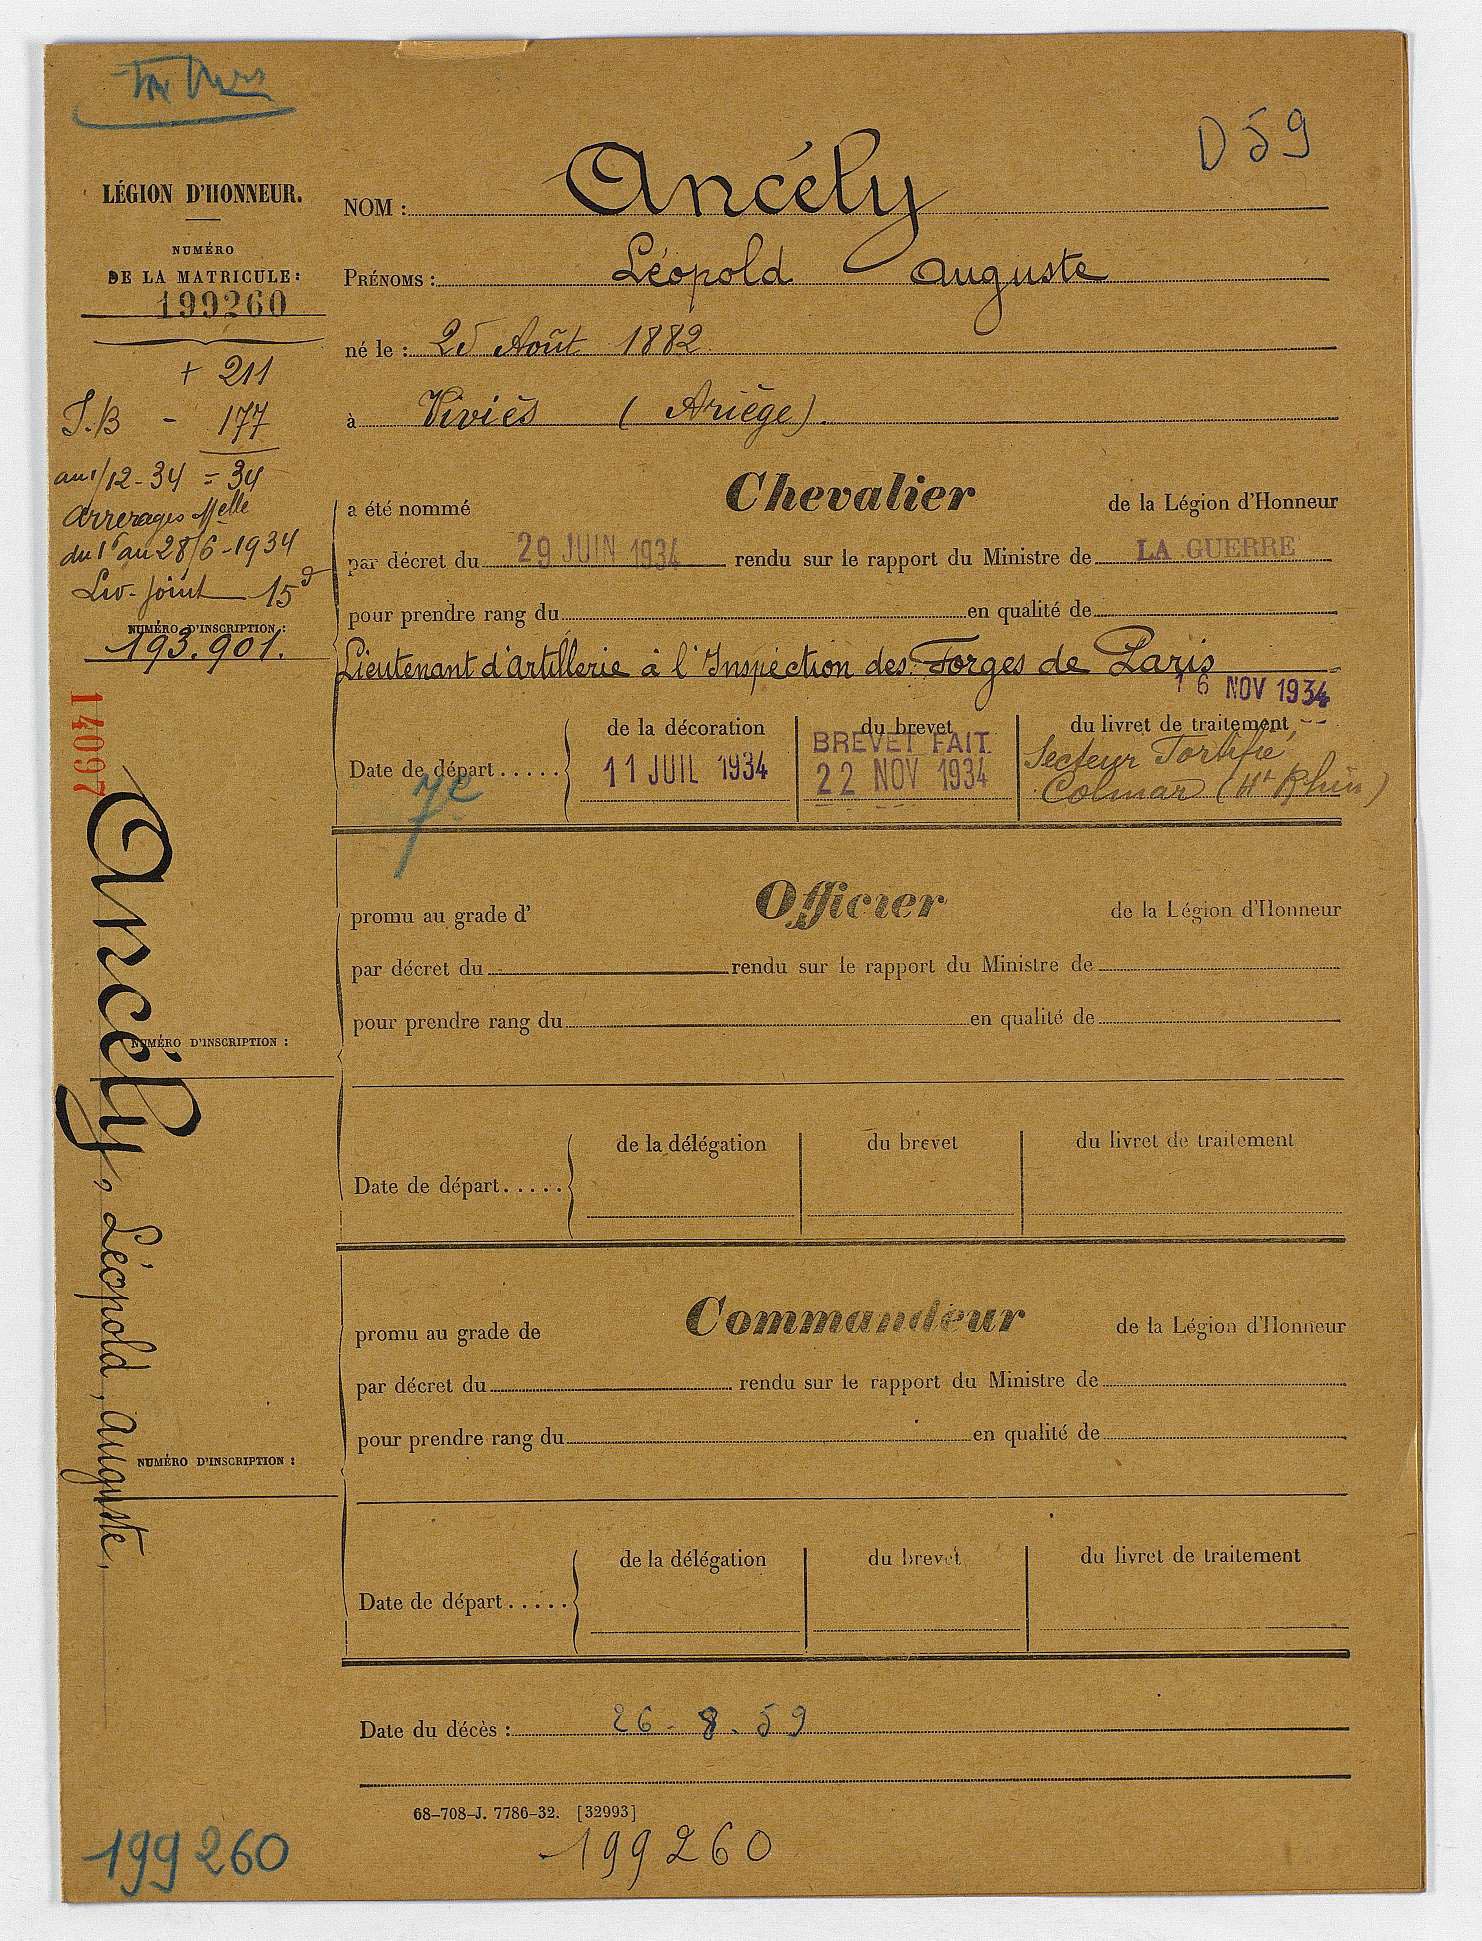 D 59
LÉGION D'HONNEUR.
NUMÉRO
DE LA MATRICULE :
199260
+ 211
T.B - 177
au 1/12-34 = 34
Arrerages Melle
du 1er au 28/6-1934
Liv. joint 15
NUMÉRO D'INSCRIPTION :
193.901.
14097
Ancély, Léopold, Auguste,
NUMÉRO D'INSCRIPTION :
NUMÉRO D'INSCRIPTION :
NOM : Ancély
PRÉNOMS : Léopold Auguste
né le : 25 Août 1882
à Viviès (Ariège).
a été nommé Chevalier de la Légion d'Honneur
par décret du 29 JUIN 1934 rendu sur le rapport du Ministre de LA GUERRE
pour prendre rang du en qualité de
Lieutenant d'Artillerie à l'Inspection des Forges de Paris
16 NOV 1934
de la décoration du brevet du livret de traitement
Date de départ..... 11 JUIL 1934 BREVET FAIT 22 NOV 1934 Secteur Fortifié
Colmar (Ht Rhin)
7e
promu au grade d' Officier de la Légion d'Honneur
par décret du rendu sur le rapport du Ministre de
pour prendre rang du en qualité de
de la délégation du brevet du livret de traitement
Date de départ.....
promu au grade de Commandeur de la Légion d'Honneur
par décret du rendu sur le rapport du Ministre de
pour prendre rang du en qualité de
de la délégation du brevet du livret de traitement
Date de départ.....
Date du décès : 26-8.59
68-708-J. 7786-32. [32993]
199260
199260